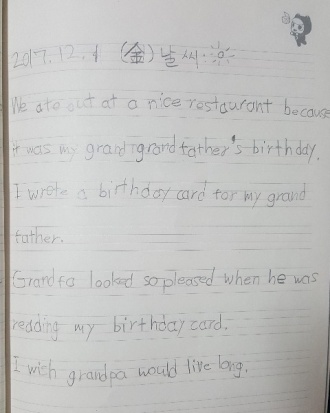 2017.12.1 (金) 날씨
We ate out at a nice restaurant because
it was my grandgrandfather's birthday.
I wrote a birthday card for my grand
father.
Grandfa looked so pleased when he was
reading my birthday card.
I wish grandpa would live long.